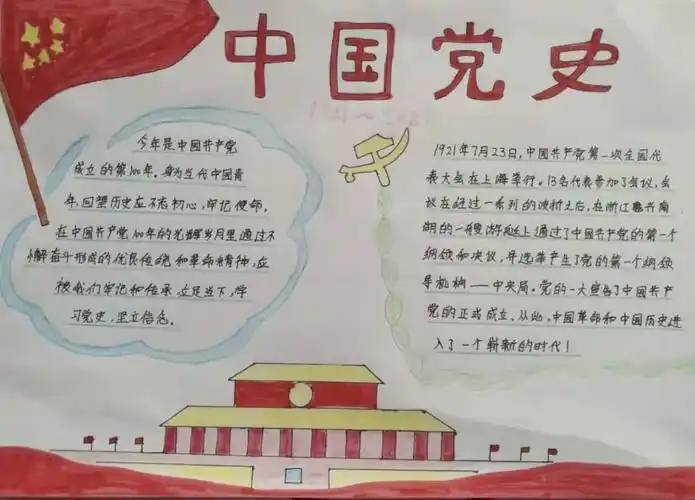 中国党史
1921~2021
今年是中国共产党
成立的第100年。身为当代中国青
年,回望历史应不忘初心,牢记使命。
在中国共产党100年的光辉岁月里通过不
懈奋斗形成的优良传统和革命精神,应
被我们牢记和传承。立足当下,学
习党史,坚立信念。
1921年7月23日,中国共产党第一次全国代
表大会在上海举行。13名代表参加了会议,会
议在经过一系列的波折之后,在浙江嘉兴南
湖的一艘游艇上通过了中国共产党的第一个
纲领和决议,并选举产生了党的第一个纲领
导机构——中央局。党的一大宣告了中国共产
党的正式成立、从此,中国革命和中国历史进
入了一个崭新的时代!